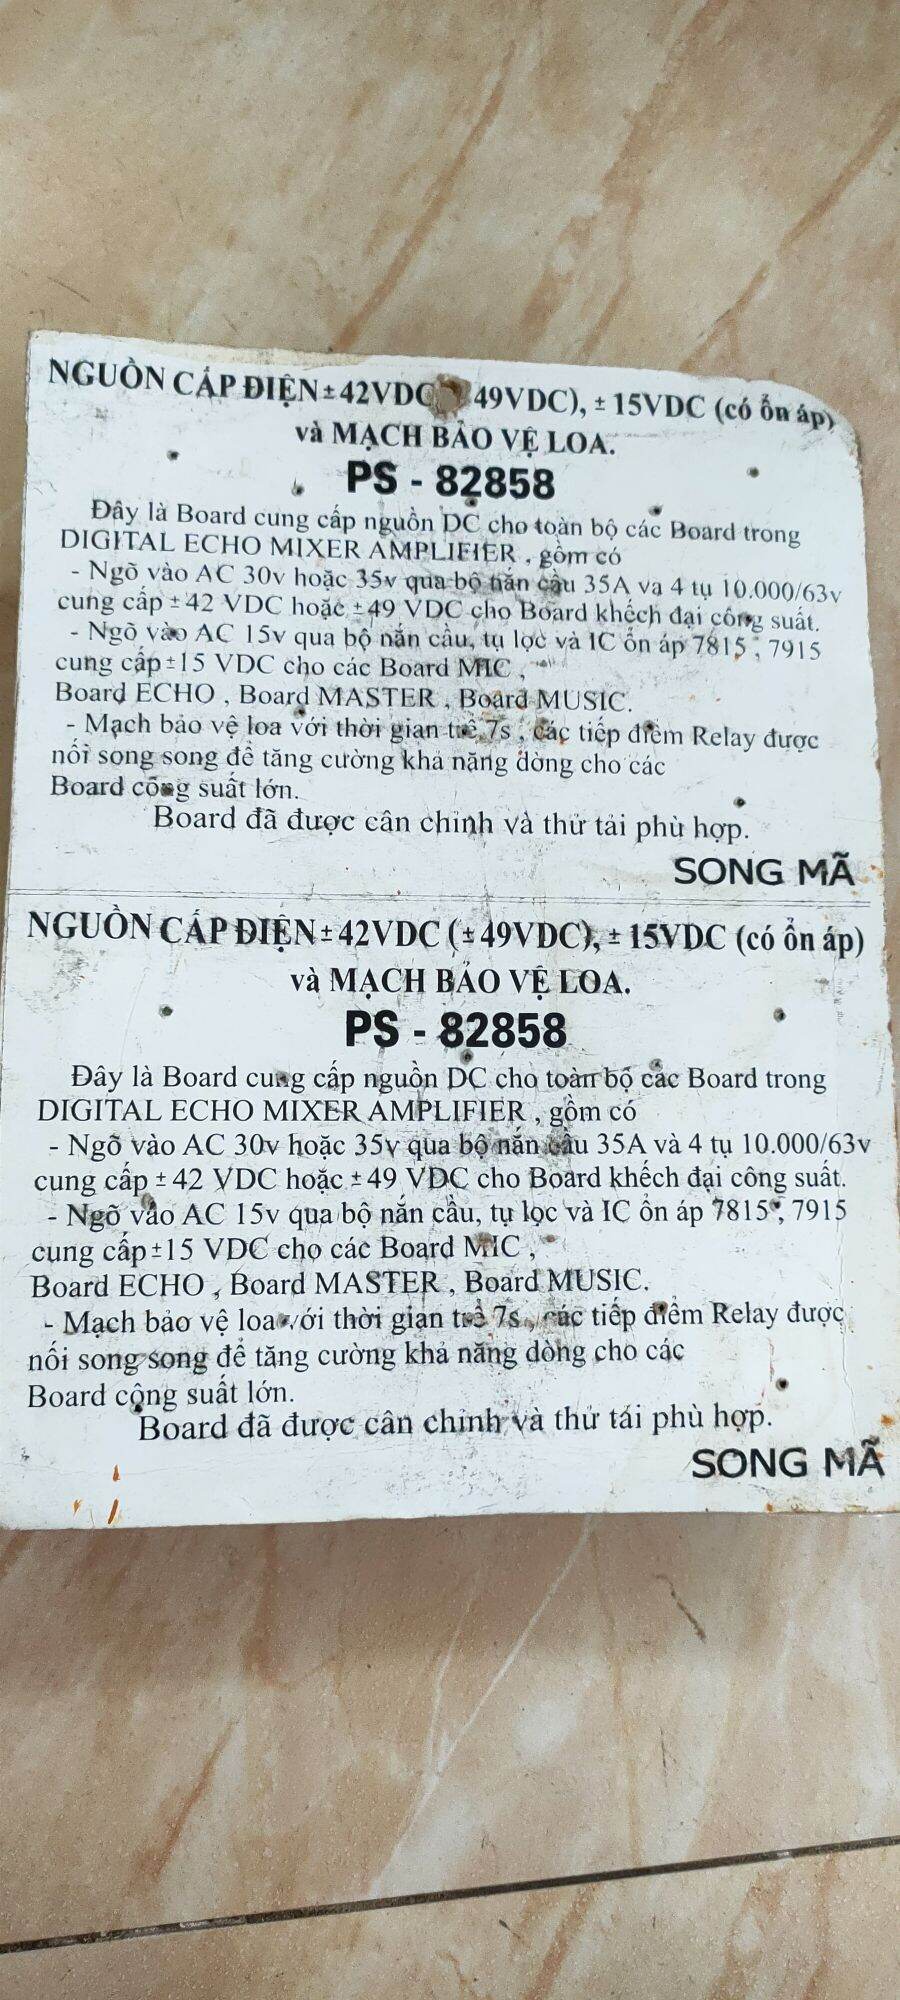 NGUỒN CẤP ĐIỆN ± 42VDC 49VDC), ± 15VDC (có ổn áp)
và MẠCH BẢO VỆ LOA.
PS - 82858
Đây là Board cung cấp nguồn DC cho toàn bộ các Board trong
DIGITAL ECHO MIXER AMPLIFIER , gồm có
- Ngõ vào AC 30v hoặc 35v qua bộ nắn cầu 35A va 4 tụ 10.000/63v
cung cấp ± 42 VDC hoặc ± 49 VDC cho Board khếch đại công suất.
- Ngõ vào AC 15v qua bộ nắn cầu, tụ lọc và IC ổn áp 7815 , 7915
cung cấp ±15 VDC cho các Board MIC ,
Board ECHO , Board MASTER , Board MUSIC.
- Mạch bảo vệ loa với thời gian trễ 7s , các tiếp điểm Relay được
nối song song để tăng cường khả năng dòng cho các
Board công suất lớn.
Board đã được cân chỉnh và thử tải phù hợp.
SONG MÃ
NGUỒN CẤP ĐIỆN ± 42VDC (± 49VDC), ± 15VDC (có ổn áp)
và MẠCH BẢO VỆ LOA.
PS - 82858
Đây là Board cung cấp nguồn DC cho toàn bộ các Board trong
DIGITAL ECHO MIXER AMPLIFIER , gồm có
- Ngõ vào AC 30v hoặc 35v qua bộ nắn cầu 35A và 4 tụ 10.000/63v
cung cấp ± 42 VDC hoặc ± 49 VDC cho Board khếch đại công suất.
- Ngõ vào AC 15v qua bộ nắn cầu, tụ lọc và IC ổn áp 7815 , 7915
cung cấp ±15 VDC cho các Board MIC ,
Board ECHO , Board MASTER , Board MUSIC.
- Mạch bảo vệ loa với thời gian trễ 7s , các tiếp điểm Relay được
nối song song để tăng cường khả năng dòng cho các
Board công suất lớn.
Board đã được cân chỉnh và thử tải phù hợp.
SONG MÃ